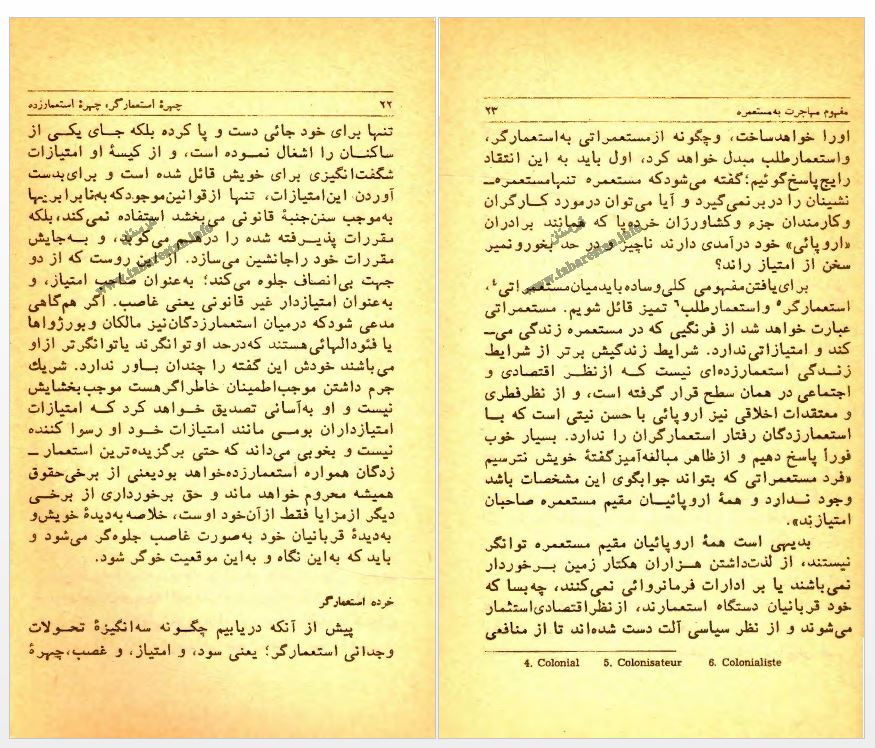 ۲۲ چهرهٔ استعمارگر، چهرهٔ استعمارزده
تنها برای خود جائی دست و پا کرده بلکه جـای یکـی از
ساکنـان را اشغال نمـوده است، و از کیسهٔ او امتیازات
شگفت‌انگیزی برای خویش قائل شده است و برای‌بدست
آوردن این‌امتیازات، تنها ازقوانین‌موجودکه‌به‌نابرابریها
به‌موجب سنن‌جنبهٔ قانونی می‌بخشد استفاده نمی‌کند، بلکه
مقررات پذیـرفته شده را درهـم می‌کوبد، و به‌جایش
مقررات خود راجانشین می‌سازد. از این روست که از دو
جهت بی‌انصاف جلوه می‌کند؛ به‌عنوان صاحب امتیاز، و
به‌عنوان امتیازدار غیر قانونی یعنی غاصب. اگر هم‌گاهی
مدعی شودکه درمیان استعمارزدگان‌نیز مالکان وبورژواها
یا فئودالهائی‌هستند که‌درحد اوتوانگرند یاتوانگرتر ازاو
می‌باشند خودش این گفته را چندان بـاور ندارد. شریك
جرم داشتن موجب‌اطمینان خاطراگرهست موجب‌بخشایش
نیست و او به‌آسانی تصدیق خـواهد کرد کـه امتیازات
امتیازداران بومـی مانند امتیازات خـود او رسوا کننده
نیست و بخوبی می‌داند که حتی برگزیده‌ترین استعمار ـ
زدگان همواره استعمارزده‌خواهد بودیعنی از برخی‌حقوق
همیشه محروم خواهد ماند و حق برخورداری از برخـی
دیگر ازمزایا فقط ازآن‌خود اوست، خلاصه به‌دیدهٔ خویش‌و
به‌دیدهٔ قربانیان خود به‌صورت غاصب جلوه‌گر می‌شود و
باید که به‌این نگاه و به‌این موقعیت خوگر شود.
خرده استعمارگر
پیش از آنکه دریابیم چگـونه سه‌انگیزهٔ تحـولات
وجدانی استعمارگر؛ یعنی سود، و امتیاز، و غصب، چهرهٔ
مفهوم مهاجرت به‌مستعمره ۲۳
اورا خواهدساخت، وچگونه ازمستعمراتی به‌استعمارگر،
واستعمارطلب مبدل خواهد کرد، اول باید به این انتقاد
رایج‌پاسخ‌گوئیم؛گفته می‌شودکه مستعمره تنهامستعمره‌ـ
نشینان را دربرنمی‌گیرد و آیا می‌توان درمورد کـارگران
وکارمندان جزء وکشاورزان خرده‌پا که همانند برادران
«اروپائی» خود درآمدی دارند ناچیز و در حد بخورونمیر
سخن از امتیاز راند؟
برای‌یافتن‌مفهومی کلی‌وساده‌بایدمیان‌مستعمراتی۴،
استعمارگر۵ واستعمارطلب۶ تمیز قائل شویم. مستعمراتی
عبارت خواهد شد از فرنگیی که در مستعمره زندگی می‌ـ
کند و امتیازاتی‌ندارد. شرایط زندگیش برتر از شرایط
زنـدگی استعمارزده‌ای نیست کـه ازنظـر اقتصادی و
اجتماعی در همان سطح قرار گرفته است، و از نظرفطری
و معتقدات اخلاقی نیز اروپائی با حسن نیتی است که بـا
استعمارزدگان رفتار استعمارگران را ندارد. بسیار خوب
فوراً پاسخ دهیم و ازظاهر مبالغه‌آمیزگفتهٔ خویش نترسیم
«فرد مستعمراتی که بتواند جوابگوی این مشخصات باشد
وجود نـدارد و همهٔ اروپائیـان مقیم مستعمره صاحبان
امتیازند».
بدیهی است همهٔ اروپائیان مقیم مستعمره توانگر
نیستند، از لذت‌داشتن هـزاران هکتار زمین بـرخوردار
نمی‌باشند یا بر ادارات فرمانروائی نمی‌کنند، چه‌بسا که
خود قربانیان دستگاه استعمارند، ازنظراقتصادی‌استثمار
می‌شوند و از نظر سیاسی آلت دست شده‌اند تا از منافعی
4. Colonial 5. Colonisateur 6. Colonialiste
www.tabarestan.info
www.tabarestan.info